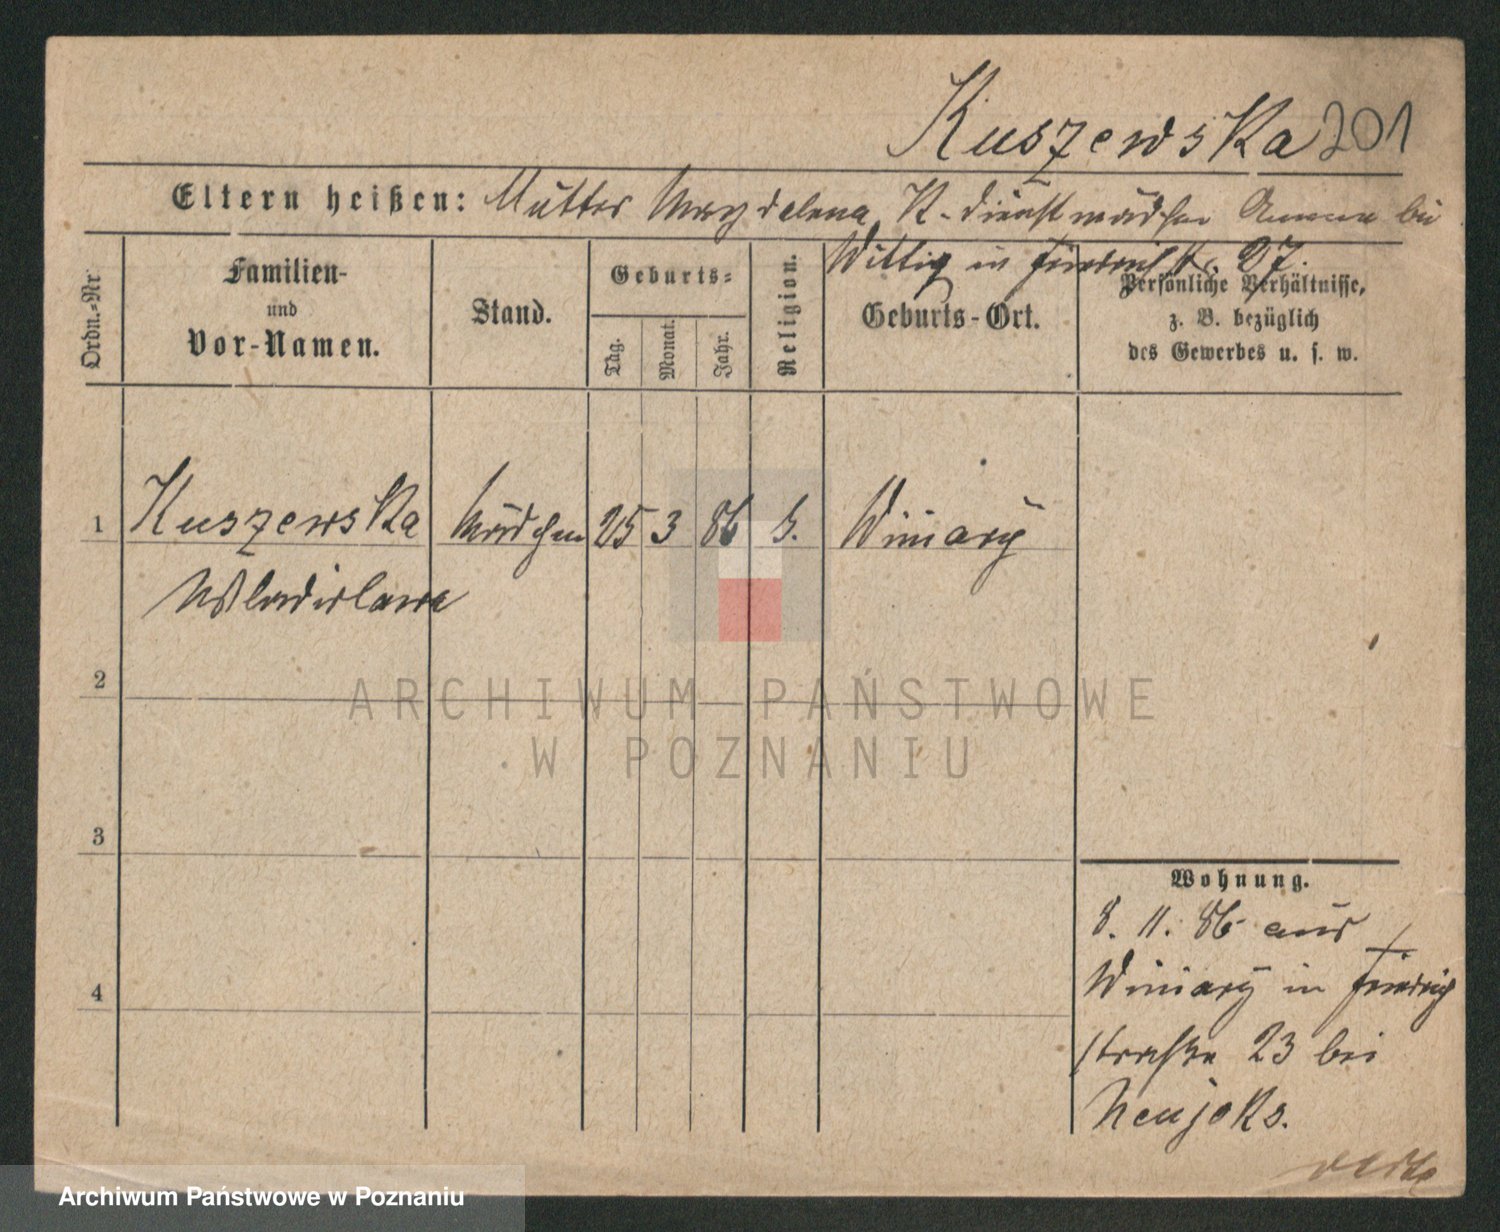 Kuszewska 201
Eltern heißen: Mutter Magdalena K. Dienstmädchen Amme bei
Wittig in Friedrichstr. 27.
Ordn.-Nr
Familien-
und
Vor-Namen.
Stand.
Geburts-
Tag.
Monat.
Jahr.
Religion.
Geburts-Ort.
Persönliche Verhältnisse,
z. B. bezüglich
des Gewerbes u. s. w.
1 Kuszewska Mädchen 25 3 86 Winiary
Wladislawa
2
3
4
Wohnung.
8. 11. 86 aus
Winiary in Friedrich
straße 23 bei
Neujoks.
ARCHIWUM PAŃSTWOWE
W POZNANIU
Archiwum Państwowe w Poznaniu